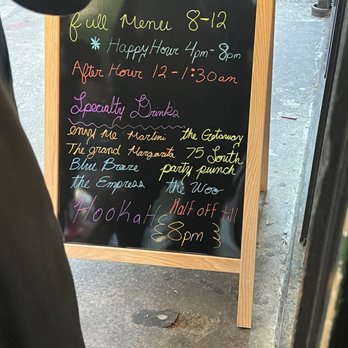 full Menu 8-12
* Happy Hour 4pm-8pm
After Hour 12-1:30am
Specialty Drinks
envy Me Martini the Getaway
The grand Margarita 75 South
Blue Braze party punch
the Empress the Woo
Hookah Half off till
8pm